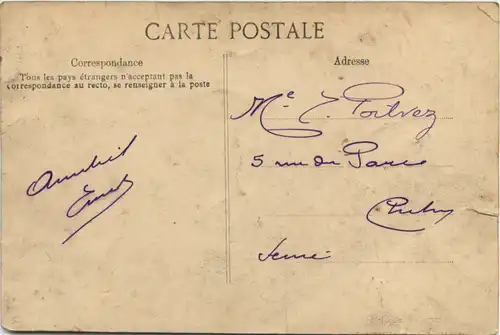 CARTE POSTALE
Correspondance
Tous les pays étrangers n'acceptant pas la
correspondance au recto, se renseigner à la poste
Adresse
Amitié
M.e E. Poitvez
5 rue du Parc
Seine